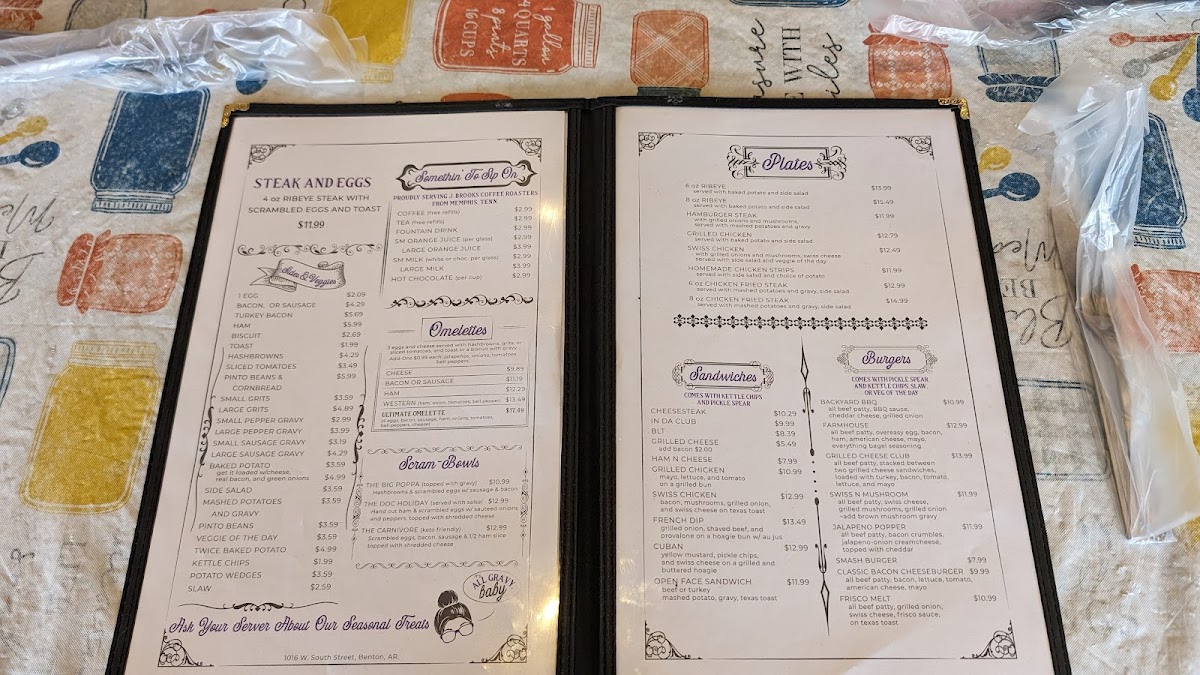 1 gallon
4 QUARTS
8 pints
16 CUPS
STEAK AND EGGS
4 oz RIBEYE STEAK WITH
SCRAMBLED EGGS AND TOAST
$11.99
Sides & Veggies
1 EGG $2.09
BACON, OR SAUSAGE $4.29
TURKEY BACON $5.69
HAM $5.99
BISCUIT $2.69
TOAST $1.99
HASHBROWNS $4.29
SLICED TOMATOES $3.49
PINTO BEANS & $5.99
CORNBREAD
SMALL GRITS $3.59
LARGE GRITS $4.89
SMALL PEPPER GRAVY $2.99
LARGE PEPPER GRAVY $3.99
SMALL SAUSAGE GRAVY $3.19
LARGE SAUSAGE GRAVY $4.29
BAKED POTATO $3.59
get it loaded w/cheese, $4.99
real bacon, and green onions
SIDE SALAD $3.59
MASHED POTATOES $3.59
AND GRAVY
PINTO BEANS $3.59
VEGGIE OF THE DAY $3.59
TWICE BAKED POTATO $4.99
KETTLE CHIPS $1.99
POTATO WEDGES $3.59
SLAW $2.59
Somethin' To Sip On
PROUDLY SERVING J. BROOKS COFFEE ROASTERS
FROM MEMPHIS, TENN
COFFEE (free refills) $2.99
TEA (free refills) $2.99
FOUNTAIN DRINK $2.99
SM ORANGE JUICE (per glass) $2.99
LARGE ORANGE JUICE $3.99
SM MILK (white or choc. per glass) $2.99
LARGE MILK $3.99
HOT CHOCOLATE (per cup) $2.99
Omelettes
3 eggs and cheese served with hashbrowns, grits, or
sliced tomatoes, and toast or a biscuit with gravy
Add-Ons $0.99 each: jalapeños, onions, tomatoes
bell peppers
CHEESE $9.89
BACON OR SAUSAGE $11.19
HAM $12.29
WESTERN (ham, onion, tomatoes, bell pepper) $13.49
ULTIMATE OMELETTE $17.49
(4 eggs, bacon, sausage, ham, onions, tomatoes,
bell peppers, cheese)
Scram-Bowls
THE BIG POPPA (topped with gravy) $10.99
Hashbrowns & scrambled eggs w/ sausage & bacon
THE DOC HOLIDAY (served with salsa) $12.99
Hand cut ham & scrambled eggs w/ sauteed onions
and peppers, topped with shredded cheese
THE CARNIVORE (keto friendly) $12.99
Scrambled eggs, bacon, sausage & 1/2 ham slice
topped with shredded cheese
ALL GRAVY
baby
Ask Your Server About Our Seasonal Treats
1016 W. South Street, Benton, AR.
Plates
6 oz RIBEYE $13.99
served with baked potato and side salad
8 oz RIBEYE $15.49
served with baked potato and side salad
HAMBURGER STEAK $11.99
with grilled onions and mushrooms,
served with mashed potatoes and gravy
GRILLED CHICKEN $12.79
served with baked potato and side salad
SWISS CHICKEN $12.49
with grilled onions and mushrooms, swiss cheese
served with side salad and veggie of the day
HOMEMADE CHICKEN STRIPS $11.99
served with side salad and choice of potato
4 oz CHICKEN FRIED STEAK $12.99
served with mashed potatoes and gravy, side salad
8 oz CHICKEN FRIED STEAK $14.99
served with mashed potatoes and gravy, side salad
Sandwiches
COMES WITH KETTLE CHIPS
AND PICKLE SPEAR
CHEESESTEAK $10.29
IN DA CLUB $9.99
BLT $8.39
GRILLED CHEESE $5.49
add bacon $2.00
HAM N CHEESE $7.99
GRILLED CHICKEN $10.99
mayo, lettuce, and tomato
on a grilled bun
SWISS CHICKEN $12.99
bacon, mushrooms, grilled onion,
and swiss cheese on texas toast
FRENCH DIP $13.49
grilled onion, shaved beef, and
provalone on a hoagie bun w/ au jus
CUBAN $12.99
yellow mustard, pickle chips,
and swiss cheese on a grilled and
buttered hoagie
OPEN FACE SANDWICH $11.99
beef or turkey
mashed potato, gravy, texas toast
Burgers
COMES WITH PICKLE SPEAR
AND KETTLE CHIPS, SLAW
OR VEG OF THE DAY
BACKYARD BBQ $10.99
all beef patty, BBQ sauce,
cheddar cheese, grilled onion
FARMHOUSE $12.99
all beef patty, overeasy egg, bacon,
ham, american cheese, mayo,
everything bagel seasoning
GRILLED CHEESE CLUB $13.99
all beef patty, stacked between
two grilled cheese sandwiches,
loaded with turkey, bacon, tomato,
lettuce, and mayo
SWISS N MUSHROOM $11.99
all beef patty, swiss cheese,
grilled mushrooms, grilled onion
~add brown mushroom gravy
JALAPENO POPPER $11.99
all beef patty, bacon crumbles,
jalapeno-onion creamcheese,
topped with cheddar
SMASH BURGER $7.99
CLASSIC BACON CHEESEBURGER $9.99
all beef patty, bacon, lettuce, tomato,
american cheese, mayo
FRISCO MELT $10.99
all beef patty, grilled onion,
swiss cheese, frisco sauce,
on texas toast